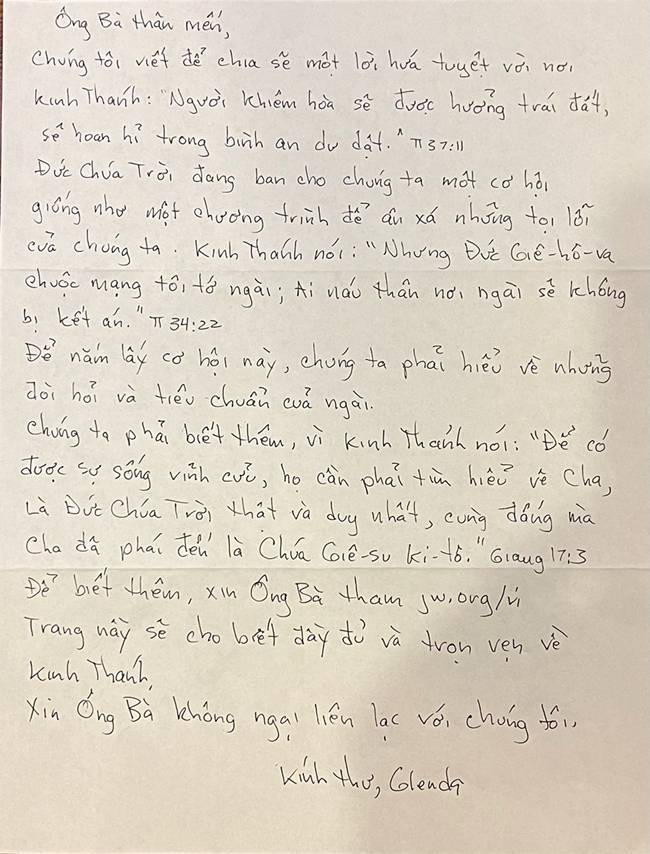 Ông Bà thân mến,
Chúng tôi viết để chia sẽ một lời hứa tuyệt vời nơi
Kinh Thánh: "Người khiêm hòa sẽ được hưởng trái đất,
sẽ hoan hỉ trong bình an dư dật." π 37:11
Đức Chúa Trời đang ban cho chúng ta một cơ hội
giống như một chương trình để ân xá những tội lỗi
cuả chúng ta. Kinh Thánh nói: "Nhưng Đức Giê-hô-va
chuộc mạng tôi tớ ngài; Ai náu thân nơi ngài sẽ không
bị kết án." π 34:22
Để nắm lấy cơ hội này, chúng ta phải hiểu về những
đòi hỏi và tiêu chuẩn cuả ngài.
Chúng ta phải biết thêm, vì Kinh Thánh nói: "Để có
được sự sống vĩnh cửu, họ cần phải tìm hiểu về Cha,
Là Đức Chúa Trời thật và duy nhất, cùng đấng mà
Cha đã phái đến là Chúa Giê-su Ki-tô." Giăng 17:3
Để biết thêm, xin Ông Bà tham jw.org/vi
Trang này sẽ cho biết đầy đủ và trọn vẹn về
Kinh Thánh.
Xin Ông Bà không ngại liên lạc với chúng tôi.
Kính thư, Glenda